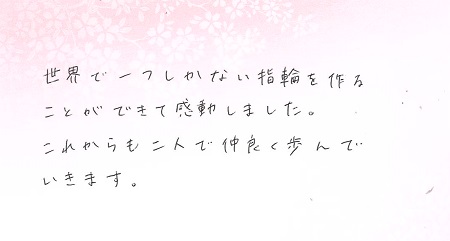 世界で一つしかない指輪を作る
ことができて感動しました。
これからも二人で仲良く歩んで
いきます。